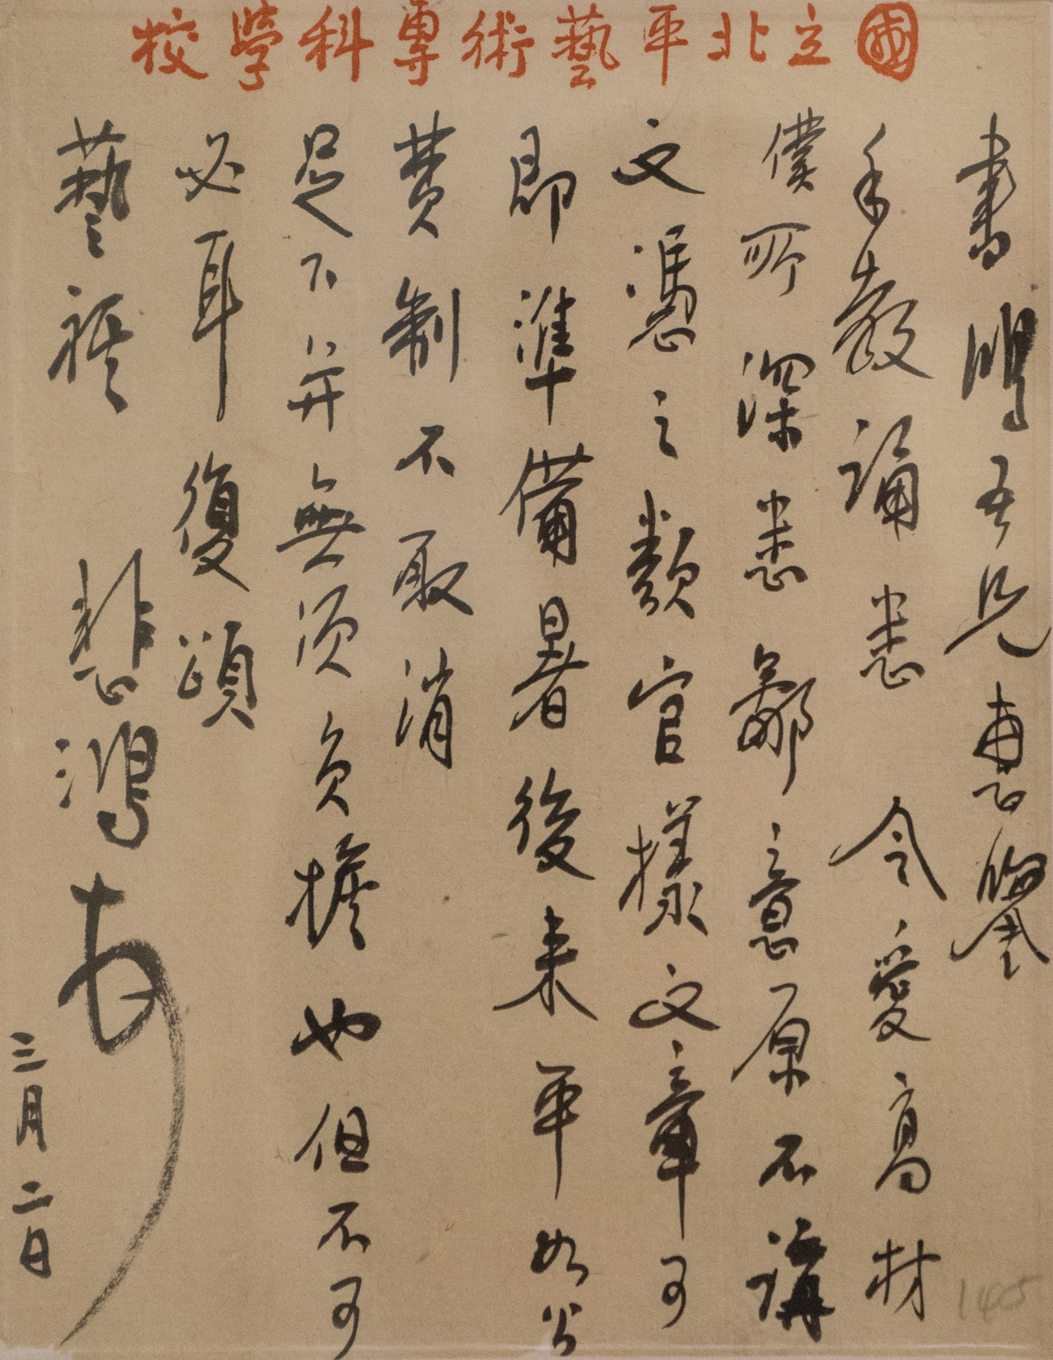 國立北平藝術專科學校
書鴻吾兄惠鑒
手教誦悉 令愛高材
僕所深悉鄙意原不講
文憑之類官樣文章可
即準備暑後來平如公
費制不取消
足下并無須負擔也但不可
必耳復頌
藝祺 悲鴻
三月二日
145